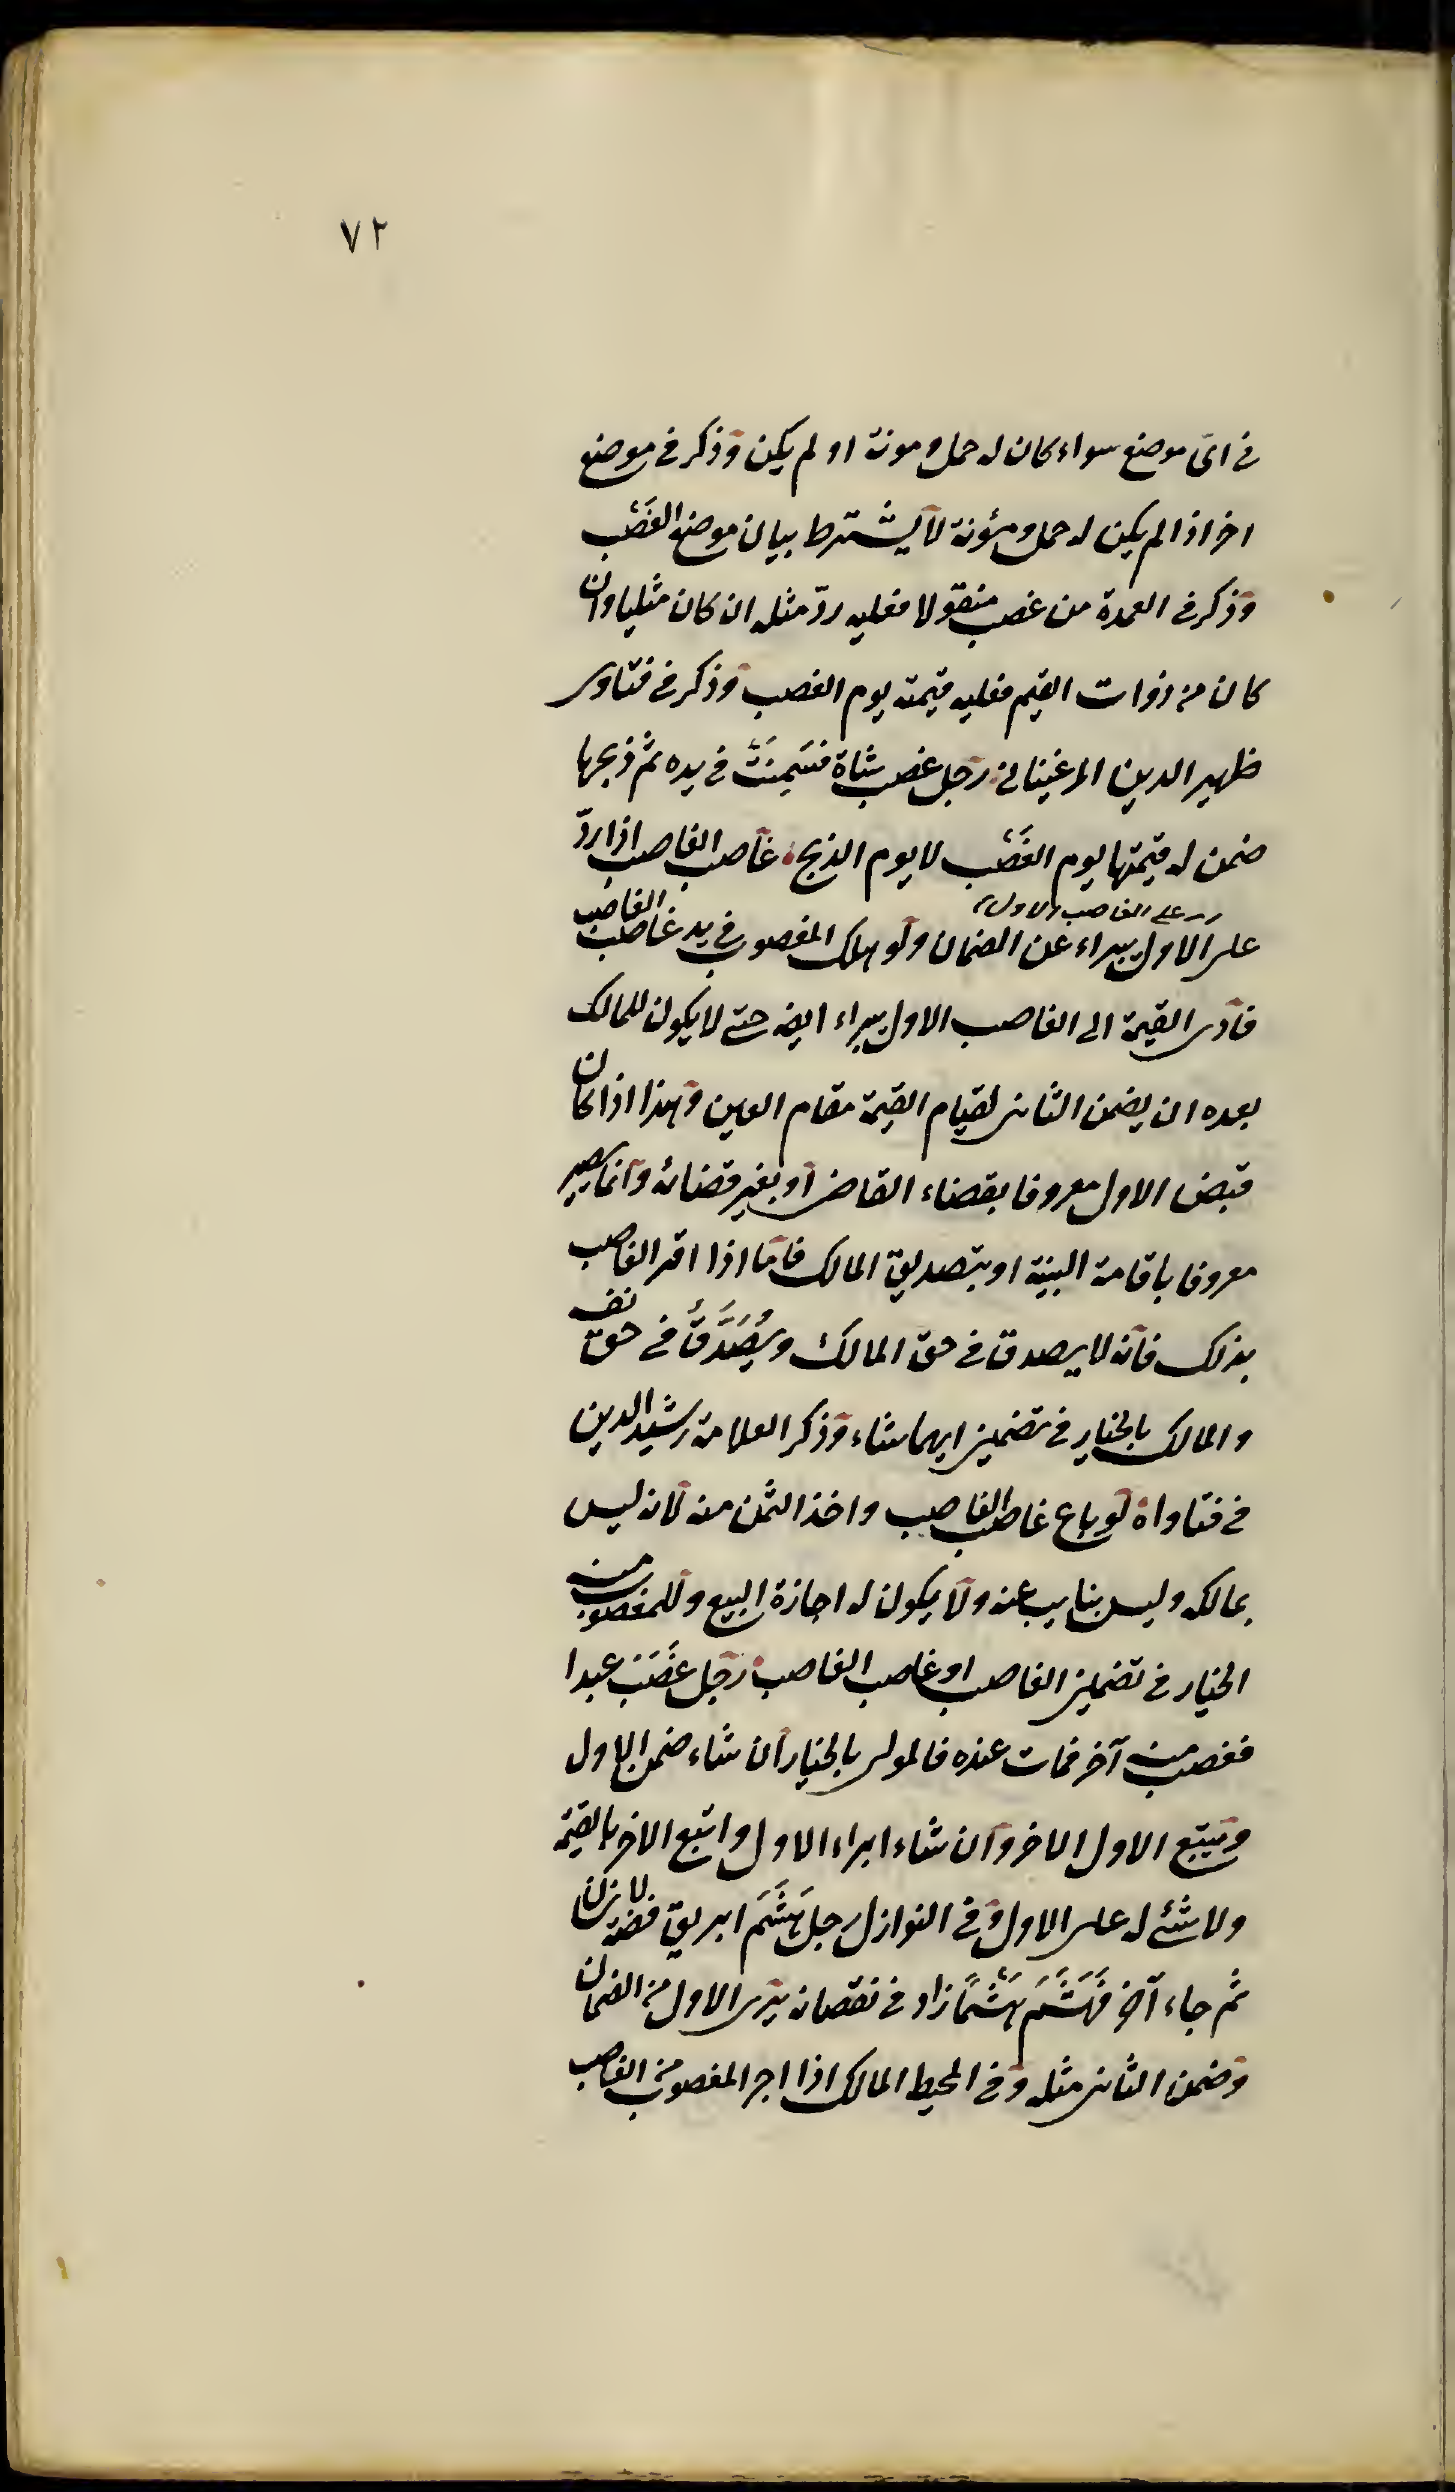 ٧٢
في اىّ موضع سواء كان له حمل ومونة او لم يكن وذكر في موضع
اخر اذا لم يكن له حمل ومؤنة لا يشترط بيان موضع الغَصْب
وذكر في العمدة من غصب منقولا فعليه ردّ مثله ان كان مثليا وان
كان من ذوات القيم فعليه قيمته يوم الغصب وذكر في فتاوى
ظهير الدين المرغيناني رجل غصب شاة فسَمِنَتْ في يده ثم ذبحها
ضمن له قيمتها يوم الغَصْب لا يوم الذبح غاصب الغاصب اذا ردّ
على الغاصب الاول
على الاول يبراء عن الضمان ولو هلك المغصوب في يد غاصب الغاصب
فأدى القيمة الى الغاصب الاول يبراء ايضه حتى لا يكون للمالك
بعده ان يضمن الثاني لقيام القيمة مقام العين وهذا اذا كان
قبض الاول معروفا بقضاء القاضي او بغير قضائه وانما يصير
معروفا باقامة البينة او بتصديق المالك فامّا اذا اقر الغاصب
بذلك فانه لا يصدق في حق المالك ويُصَدَّقُ في حق نفسه
والمالك بالخيار في تضمين ايهما شاء وذكر العلامة رشيد الدين
في فتاواه لو باع غاصب الغاصب واخذ الثمن منه لانه ليس
بمالكه وليس بنايب عنه ولا يكون له اجازة البيع وللمغصوب منه
الخيار في تضمين الغاصب او غاصب الغاصب رجل غَصَبَ عبدا
فغصب منه آخر فمات عنده فالمولى بالخيار ان شاء ضمن الاول
ويتبع الاول الاخر وان شاء ابراء الاول واتبع الاخر بالقيمة
ولا شئ له على الاول وفي النوازل رجل هَشَمَ ابريق فضة لانسان
ثم جاء آخر فَهَشَمَ هَشْمًا زاد في نقصانه يبرى الاول من الضمان
وضمن الثاني مثله وفي المحيط المالك اذا اجر المغصوب من الغاصب